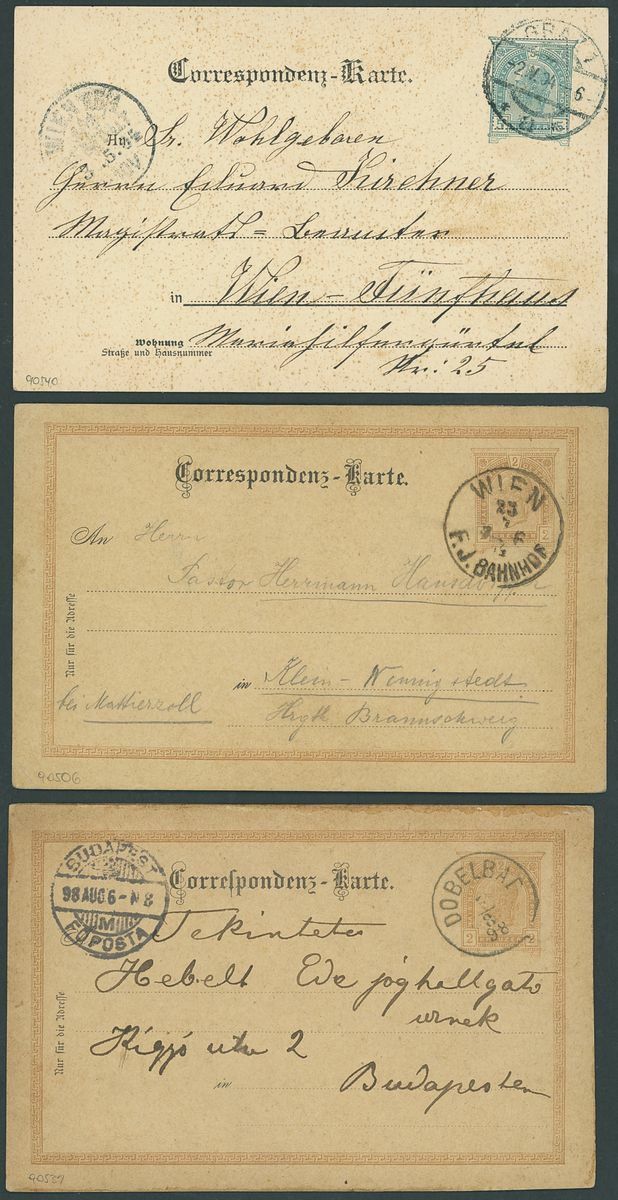 Correspondenz-Karte.
GRAZ
6
WIEN
An Sr. Wohlgeboren
Herrn Eduard Kirchner
Magistrats = Beamten
in Wien – Fünfhaus
Wohnung
Straße und Hausnummer
Mariahilfergürtel
Nr: 25
90540
Correspondenz-Karte.
2
2
WIEN
23
7
F.J. BAHNHOF
An Herrn
Pastor Herrmann
Nur für die Adresse
in Klein –
bei Mattierzoll
Hrgth Braunschweig
90506
Correſpondenz-Karte.
BUDAPEST
98 AUG 6 - N 8
M
FŐPOSTA
DOBELBAD
2
2
Tekintetes
Hebelt Ede jóghallgató
urnak
Kigyó utca 2
Nur für die Adresse
in Budapesten